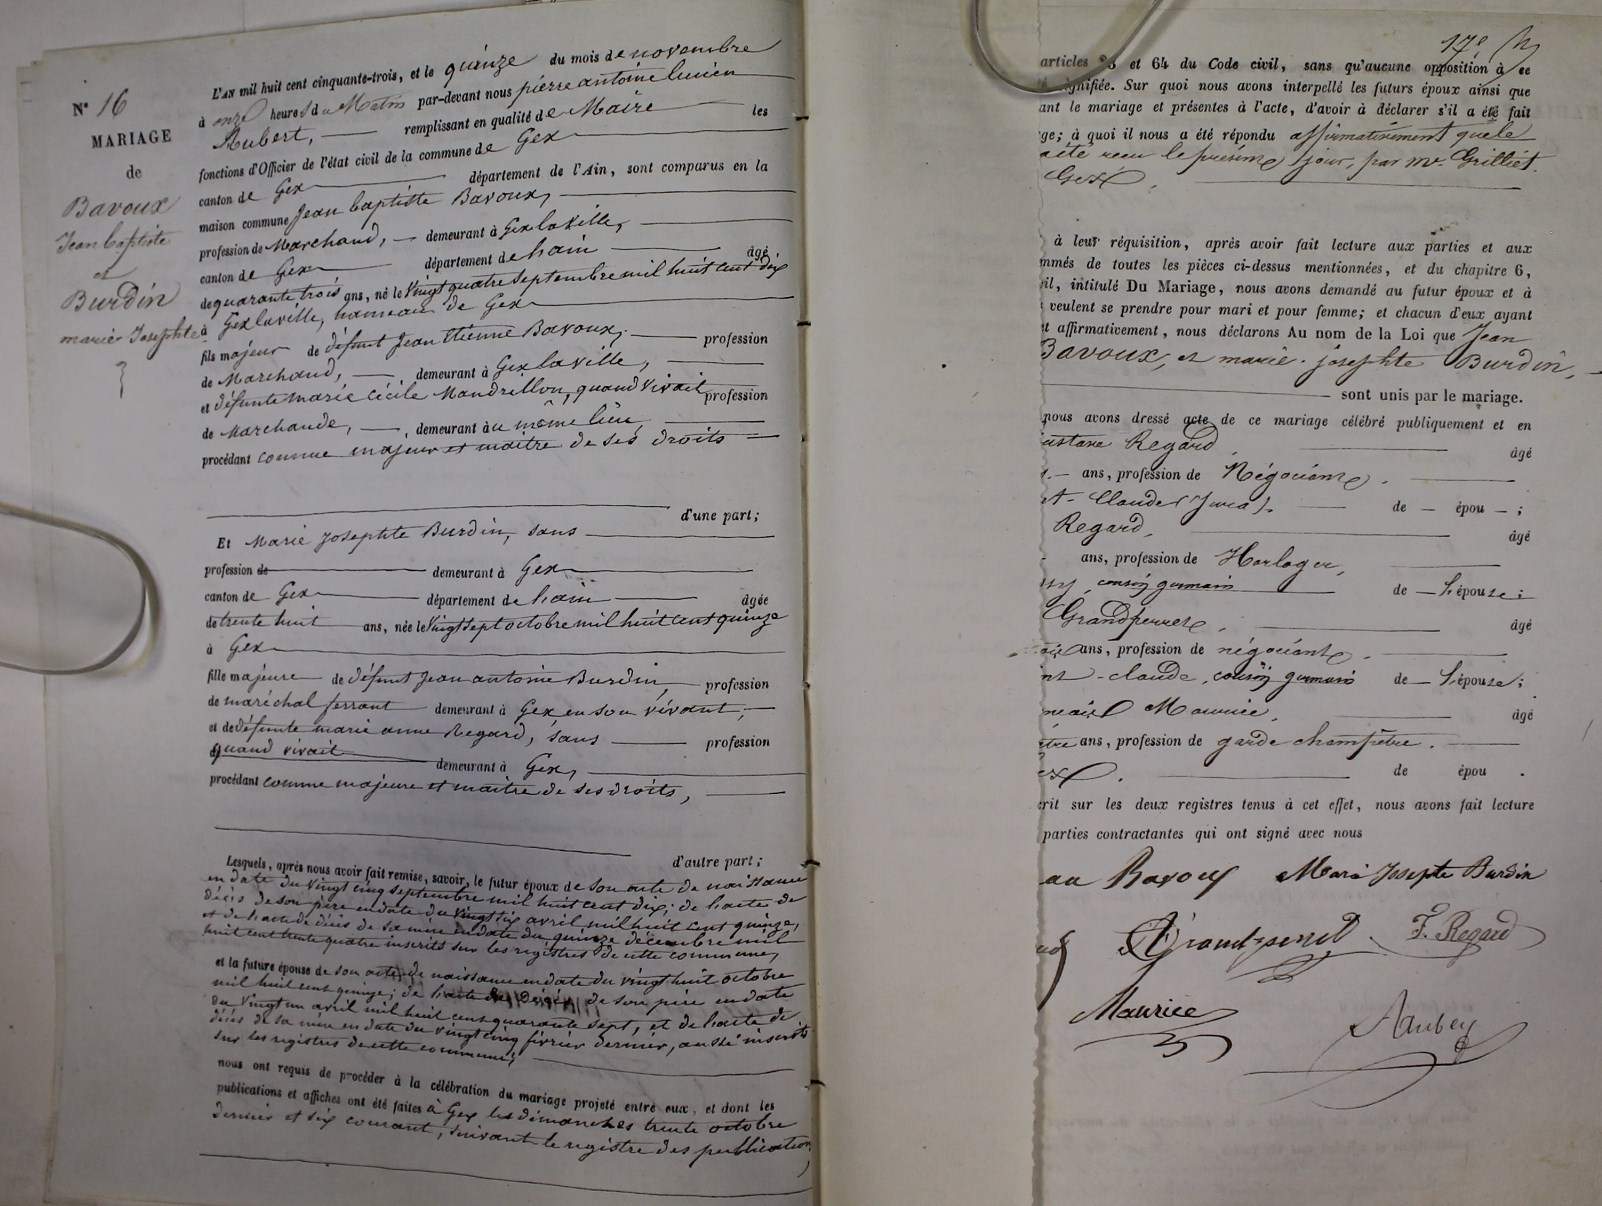 N° 16
MARIAGE
de
Bavoux
Jean baptiste
et
Burdin
marie Josephte
L'AN mil huit cent cinquante-trois, et le quinze du mois de novembre
à onze heures du Matin par-devant nous pierre antoine lucien
Aubert, remplissant en qualité de Maire les
fonctions d'Officier de l'état civil de la commune de Gex
canton de Gex département de l'Ain, sont comparus en la
maison commune Jean baptiste Bavoux,
profession de Marchand, demeurant à Gex la ville,
canton de Gex département de l'ain âgé
de quarante trois ans, né le Vingt quatre septembre mil huit cent dix
à Gex la ville, hameau de Gex
fils majeur de défunt Jean Etienne Bavoux, profession
de Marchand, demeurant à Gex la ville,
et défunte marie Cécile Mandrillon, quand vivait profession
de Marchande, demeurant au même lieu,
procédant comme majeur et maitre de ses droits
d'une part;
Et Marie Josephte Burdin, sans
profession de demeurant à Gex
canton de Gex département de l'ain âgée
de trente huit ans, née le Vingt sept octobre mil huit cent quinze
à Gex
fille majeure de défunt Jean antoine Burdin, profession
de maréchal ferrant demeurant à Gex en son vivant,
et de défunte marie anne Regard, sans profession
quand vivait demeurant à Gex,
procédant comme majeure et maitre de ses droits,
d'autre part;
Lesquels, après nous avoir fait remise, savoir, le futur époux de son acte de naissance
en date du vingt cinq septembre mil huit cent dix; de l'acte de
décès de son père en date du vingt six avril mil huit cent quinze,
et de l'acte de décès de sa mère en date du quinze décembre mil
huit cent trente quatre inscrits sur les registres de cette commune,
et la future épouse de son acte de naissance en date du vingt huit octobre
mil huit cent quinze; de l'acte de décès de son père en date
du vingt un avril mil huit cent quarante sept, et de l'acte de
décès de sa mère en date du vingt cinq février dernier, aussi inscrits
sur les registres de cette commune,
nous ont requis de procéder à la célébration du mariage projeté entre eux, et dont les
publications et affiches ont été faites à Gex les dimanches trente octobre
dernier et six courant, suivant le registre des publications,
17e
articles 63 et 64 du Code civil, sans qu'aucune opposition à ce
signifiée. Sur quoi nous avons interpellé les futurs époux ainsi que
ant le mariage et présentes à l'acte, d'avoir à déclarer s'il a été fait
ge; à quoi il nous a été répondu affirmativement que le
a été recu le présent jour, par Me Grilliet.
Gex,
à leur réquisition, après avoir fait lecture aux parties et aux
mmés de toutes les pièces ci-dessus mentionnées, et du chapitre 6,
il, intitulé Du Mariage, nous avons demandé au futur époux et à
veulent se prendre pour mari et pour femme; et chacun d'eux ayant
t affirmativement, nous déclarons Au nom de la Loi que Jean
Bavoux, et marie josephte Burdin,
sont unis par le mariage.
nous avons dressé acte de ce mariage célébré publiquement et en
ustave Regard, âgé
ans, profession de Négociant,
t-Claude (Jura). de épou ;
Regard, âgé
ans, profession de Horloger,
cousin germain de l'épouse;
Grandperret, âgé
ans, profession de négociant,
nt-claude, cousin germain de l'épouse;
Maurice, âgé
ans, profession de garde champêtre.
ex. de épou .
crit sur les deux registres tenus à cet effet, nous avons fait lecture
parties contractantes qui ont signé avec nous
Bavoux Marie Josephte Burdin
Grandperret F. Regard
Maurice
Aubert